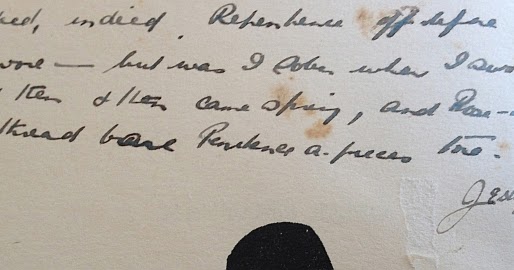 eed, indeed, Repentence oft before
wore — but was I sober when I swo
then & then came spring, and Rose-
thread bare Penitence a-pieces tore.